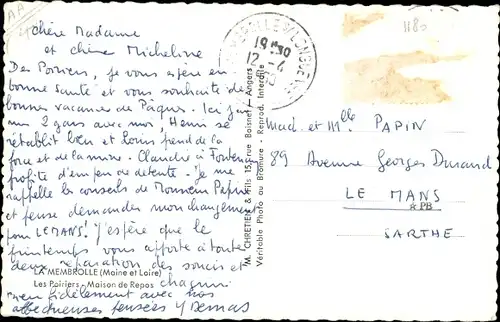 AA
chère Madame
et chère Micheline
Des Poiriers, je vous espère en
bonne santé et vous souhaite de
bonnes vacances de Pâques. Ici j'ai
mes 2 gars avec moi, Henri se
rétablit bien et Louis prend de la
force et de la mine. Claude à
profite d'un peu de détente. Je me
rappelle les conseils de Monsieur Papin
et pense demander mon changement
pour LE MANS. J'espère que le
printemps vous apporte à toutes
deux réparation des soucis et
chagrins
LA MEMBROLLE (Maine et Loire)
Les Poiriers - Maison de Repos
bien fidèlement avec nos
affectueuses pensées
M. CHRETIEN & Fils 155 rue Boisnet - Angers
Véritable Photo au Bromure - Reprod. Interdite
19 30
12 - 4
1180
Mad. et Mlle PAPIN
89 Avenue Georges Durand
LE MANS
PB
SARTHE